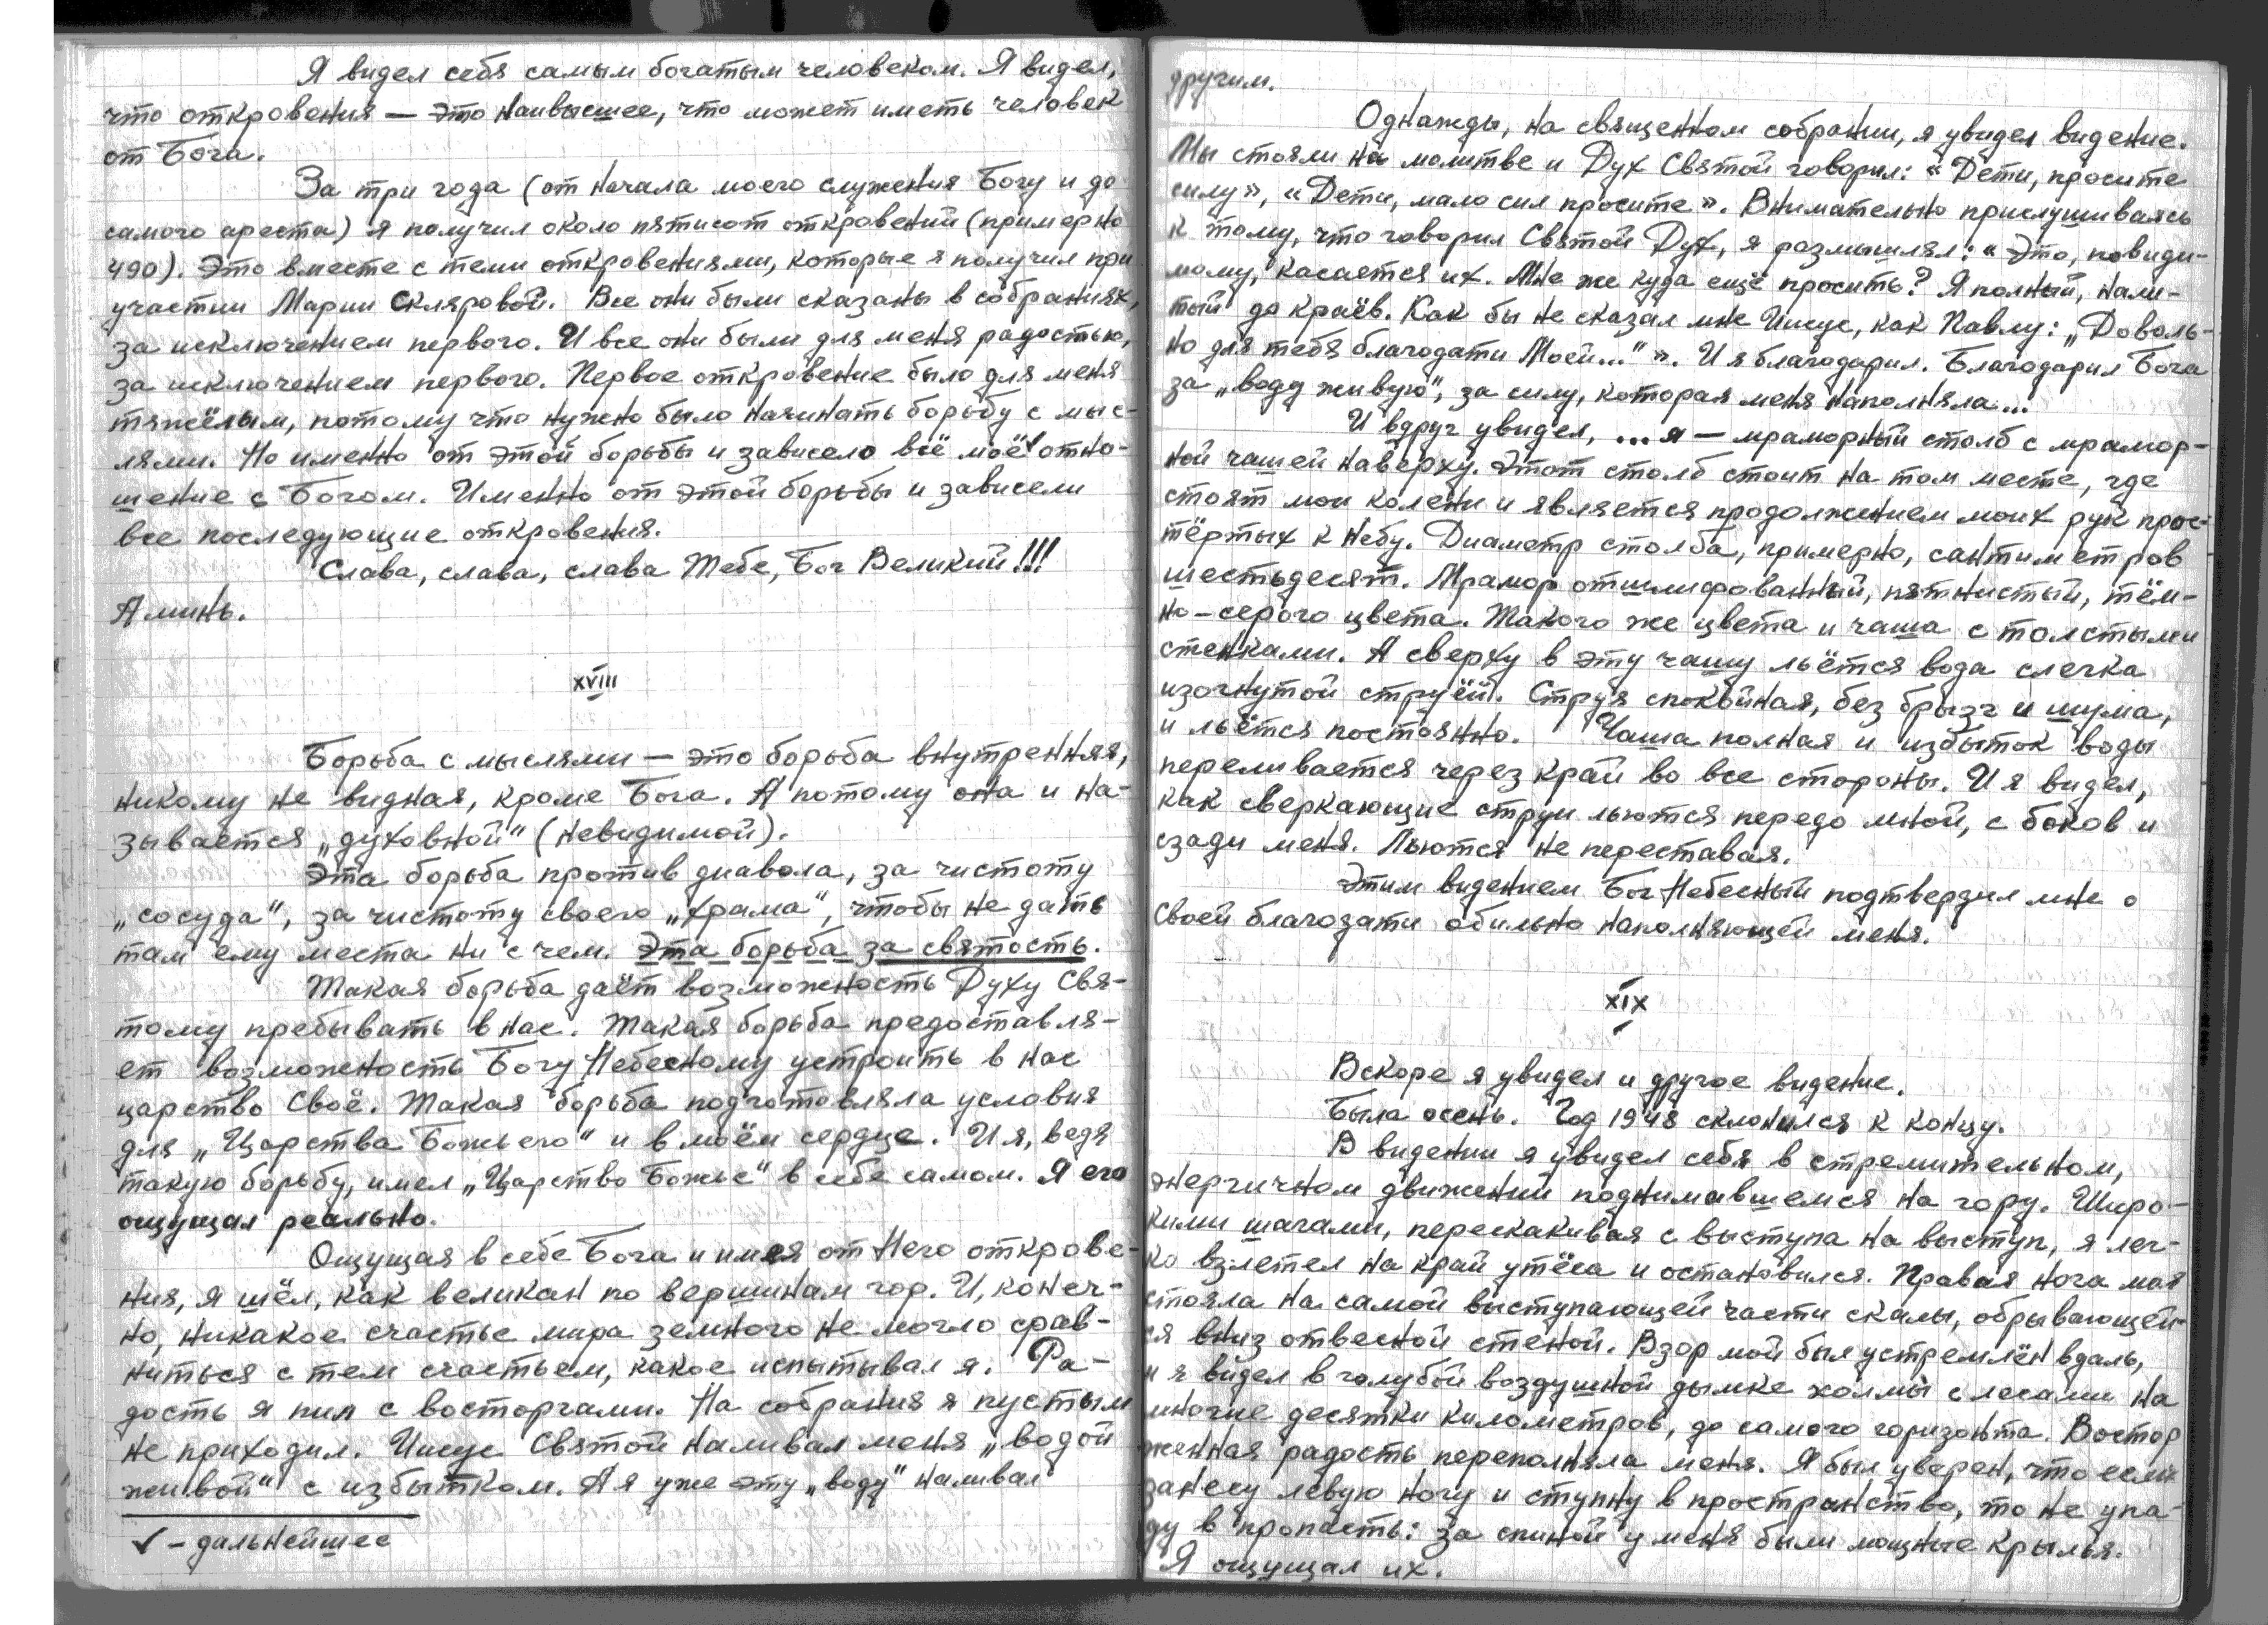 Я видел себя самым богатым человеком. Я видел,
что откровения — это наивысшее, что может иметь человек
от Бога.
За три года (от начала моего служения Богу и до
самого ареста) я получил около пятисот откровений (примерно
490). Это вместе с теми откровениями, которые я получил при
участии Марии Скляровой. Все они были сказаны в собраниях,
за исключением первого. И все они были для меня радостью,
за исключением первого. Первое откровение было для меня
тяжёлым, потому что нужно было начинать борьбу с мыс-
лями. Но именно от этой борьбы и зависело всё моё✓отно-
шение с Богом. Именно от этой борьбы и зависели
все последующие откровения.
Слава, слава, слава Тебе, Бог Великий!!!
Аминь.
XVIII
Борьба с мыслями — это борьба внутренняя,
никому не видная, кроме Бога. А потому она и на-
зывается „духовной“ (невидимой).
Эта борьба против диавола, за чистоту
„сосуда“, за чистоту своего „храма“, чтобы не дать
там ему места ни с чем. Эта борьба за святость.
Такая борьба даёт возможность Духу Свя-
тому пребывать в нас. Такая борьба предоставля-
ет возможность Богу Небесному устроить в нас
царство Своё. Такая борьба подготовляла условия
для „Царства Божьего“ и в моём сердце. И я, ведя
такую борьбу, имел „Царство Божье“ в себе самом. Я его
ощущал реально.
Ощущая в себе Бога и имея от Него открове-
ния, я шёл, как великан по вершинам гор. И, конеч-
но, никакое счастье мира земного не могло срав-
ниться с тем счастьем, какое испытывал я. Ра-
дость я пил с восторгами. На собрания я пустым
не приходил. Иисус Святой наливал меня „водой
живой“ с избытком. А я уже эту „воду“ наливал
✓ – дальнейшее
другим.
Однажды, на священном собрании, я увидел видение.
Мы стояли на молитве и Дух Святой говорил: «Дети, просите
силу», «Дети, мало сил просите». Внимательно прислушиваясь
к тому, что говорил Святой Дух, я размышлял: «Это, повиди-
мому, касается их. Мне же куда ещё просить? Я полный, нали-
тый до краёв. Как бы не сказал мне Иисус, как Павлу: „Доволь-
но для тебя благодати Моей...“». И я благодарил. Благодарил Бога
за „воду живую“, за силу, которая меня наполняла...
И вдруг увидел, ...я — мраморный столб с мрамор-
ной чашей наверху. Этот столб стоит на том месте, где
стоят мои колени и является продолжением моих рук прос-
тёртых к небу. Диаметр столба, примерно, сантиметров
шестьдесят. Мрамор отшлифованный, пятнистый, тём-
но-серого цвета. Такого же цвета и чаша с толстыми
стенками. А сверху в эту чашу льётся вода слегка
изогнутой струёй. Струя спокойная, без брызг и шума,
и льётся постоянно. Чаша полная и избыток воды
переливается через край во все стороны. И я видел,
как сверкающие струи льются передо мной, с боков и
сзади меня. Льются не переставая.
Этим видением Бог Небесный подтвердил мне о
Своей благодати обильно наполняющей меня.
XIX
Вскоре я увидел и другое видение.
Была осень. Год 1948 склонился к концу.
В видении я увидел себя в стремительном,
энергичном движении поднимавшемся на гору. Широ-
кими шагами, перескакивая с выступа на выступ, я лег-
ко взлетел на край утёса и остановился. Правая нога моя
стояла на самой выступающей части скалы, обрывающей-
ся вниз отвесной стеной. Взор мой был устремлён вдаль,
и я видел в голубой воздушной дымке холмы с лесами на
многие десятки километров, до самого горизонта. Востор
женная радость переполняла меня. Я был уверен, что если
занесу левую ногу и ступну в пространство, то не упа-
ду в пропасть: за спиной у меня были мощные крылья.
Я ощущал их.